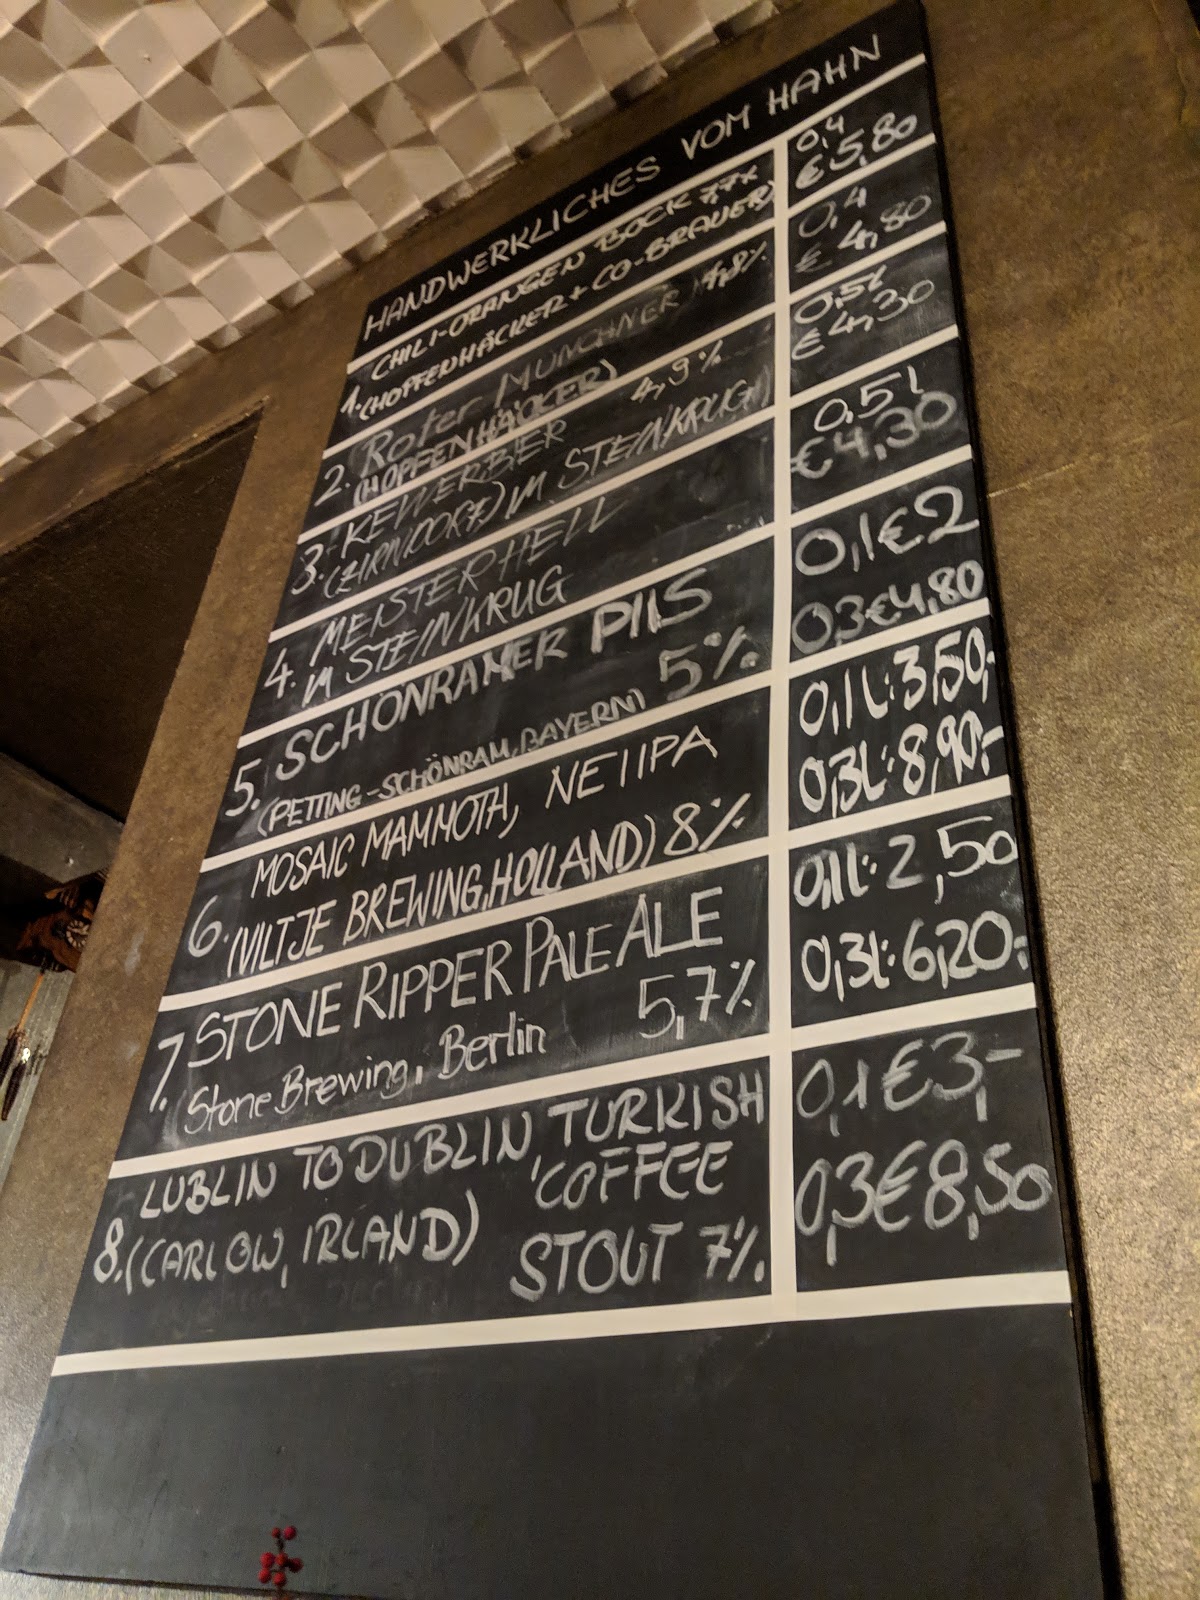 HANDWERKLICHES VOM HAHN
1. CHILI-ORANGEN BOCK 7,7%
(HOPFENHÄCKER + CO-BRAUER)
0,4
€ 5,80
2. Roter MÜNCHNER 4,8%
(HOPFENHÄCKER)
0,4
€ 4,80
3. KELLERBIER 4,9%
(ZIRNDORF) IM STEINKRUG
0,5l
€ 4,30
4. MEISTER HELL
IM STEINKRUG
0,5l
€ 4,30
5. SCHÖNRAMER PILS
(PETTING-SCHÖNRAM, BAYERN) 5%
0,1 € 2
0,3 € 4,80
6. MOSAIC MAMMOTH, NE IIPA
(VILTJE BREWING, HOLLAND) 8%
0,1L: 3,50,-
0,3L: 8,90,-
7. STONE RIPPER PALE ALE
(Stone Brewing, Berlin 5,7%
0,1L: 2,50
0,3L: 6,20,-
8. LUBLIN TO DUBLIN, TURKISH
(CARLOW, IRLAND) COFFEE
STOUT 7%
0,1 € 3,-
0,3 € 8,50